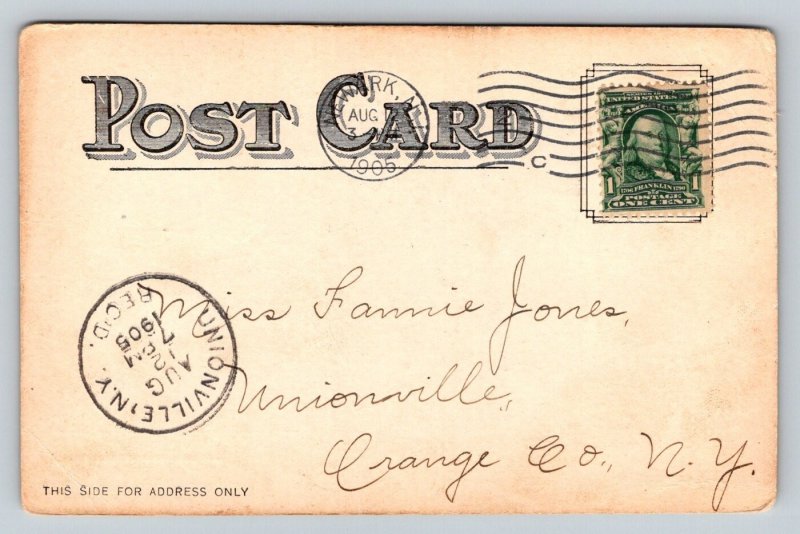 POST CARD
NEWARK, N.J.
AUG
3
1905
C
UNITED STATES OF
AMERICA
1706 FRANKLIN 1790
1 POSTAGE 1
ONE CENT
Miss Fannie Jones,
Unionville,
Orange Co., N.Y.
UNIONVILLE, N.Y.
AUG
7
12 M
1905
REC'D.
THIS SIDE FOR ADDRESS ONLY